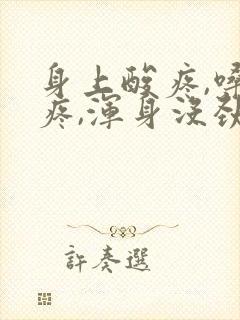 身上酸疼,嗓
疼,渾身沒勁
許奏選